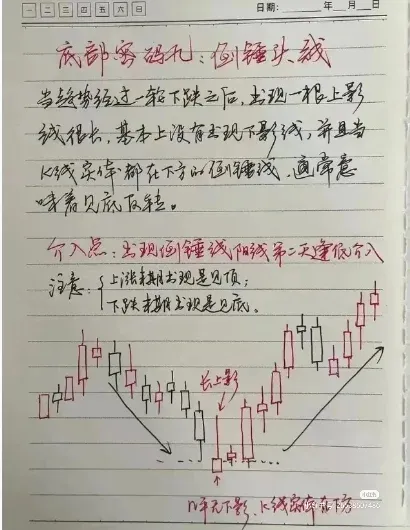 一 二 三 四 五 六 日 日期: 年 月 日
底部密码九:倒锤头线
当趋势经过一轮下跌之后,出现一根上影
线很长,基本上没有出现下影线,并且当
K线实体都在下方的倒锤线,通常意
味着见底反转。
介入点:出现倒锤线阳线第二天逢低介入
注意:上涨末期出现是见顶;
下跌末期出现是见底。
长上影
小红书
无下影,K线实体在下方